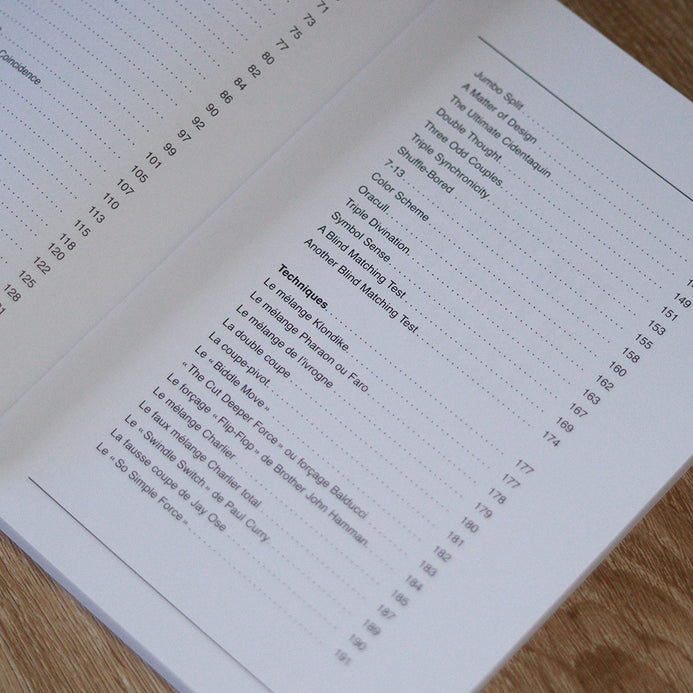 Coincidence
71
73
75
77
80
82
84
86
90
92
97
99
101
105
107
110
113
115
118
120
122
125
128
Jumbo Split
A Matter of Design
The Ultimate Cidentaquin
Double Thought 149
Three Odd Couples 151
Triple Synchronicity 153
Shuffle-Bored 155
7-13 158
Color Scheme 160
Oracull 162
Triple Divination 163
Symbol Sense 167
A Blind Matching Test 169
Another Blind Matching Test 174
Techniques 177
Le mélange Klondike 177
Le mélange Pharaon ou Faro 178
Le mélange de l'ivrogne 179
La double coupe 180
La coupe-pivot 181
Le « Biddle Move » 182
“The Cut Deeper Force” ou forçage Balducci 183
Le forçage « Flip-Flop » de Brother John Hamman 184
Le mélange Charlier 185
Le faux mélange Charlier total 187
Le « Swindle Switch » de Paul Curry 189
La fausse coupe de Jay Ose 190
Le « So Simple Force » 191